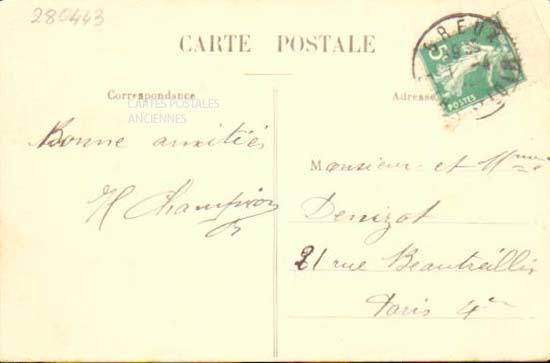 280443
CARTE POSTALE
Correspondance
Adresse
CARTES POSTALES
ANCIENNES
5
POSTES
Bonne amitiés
H Champion
Monsieur et Mme
Denizot
21 rue Beautreillis
Paris 4e